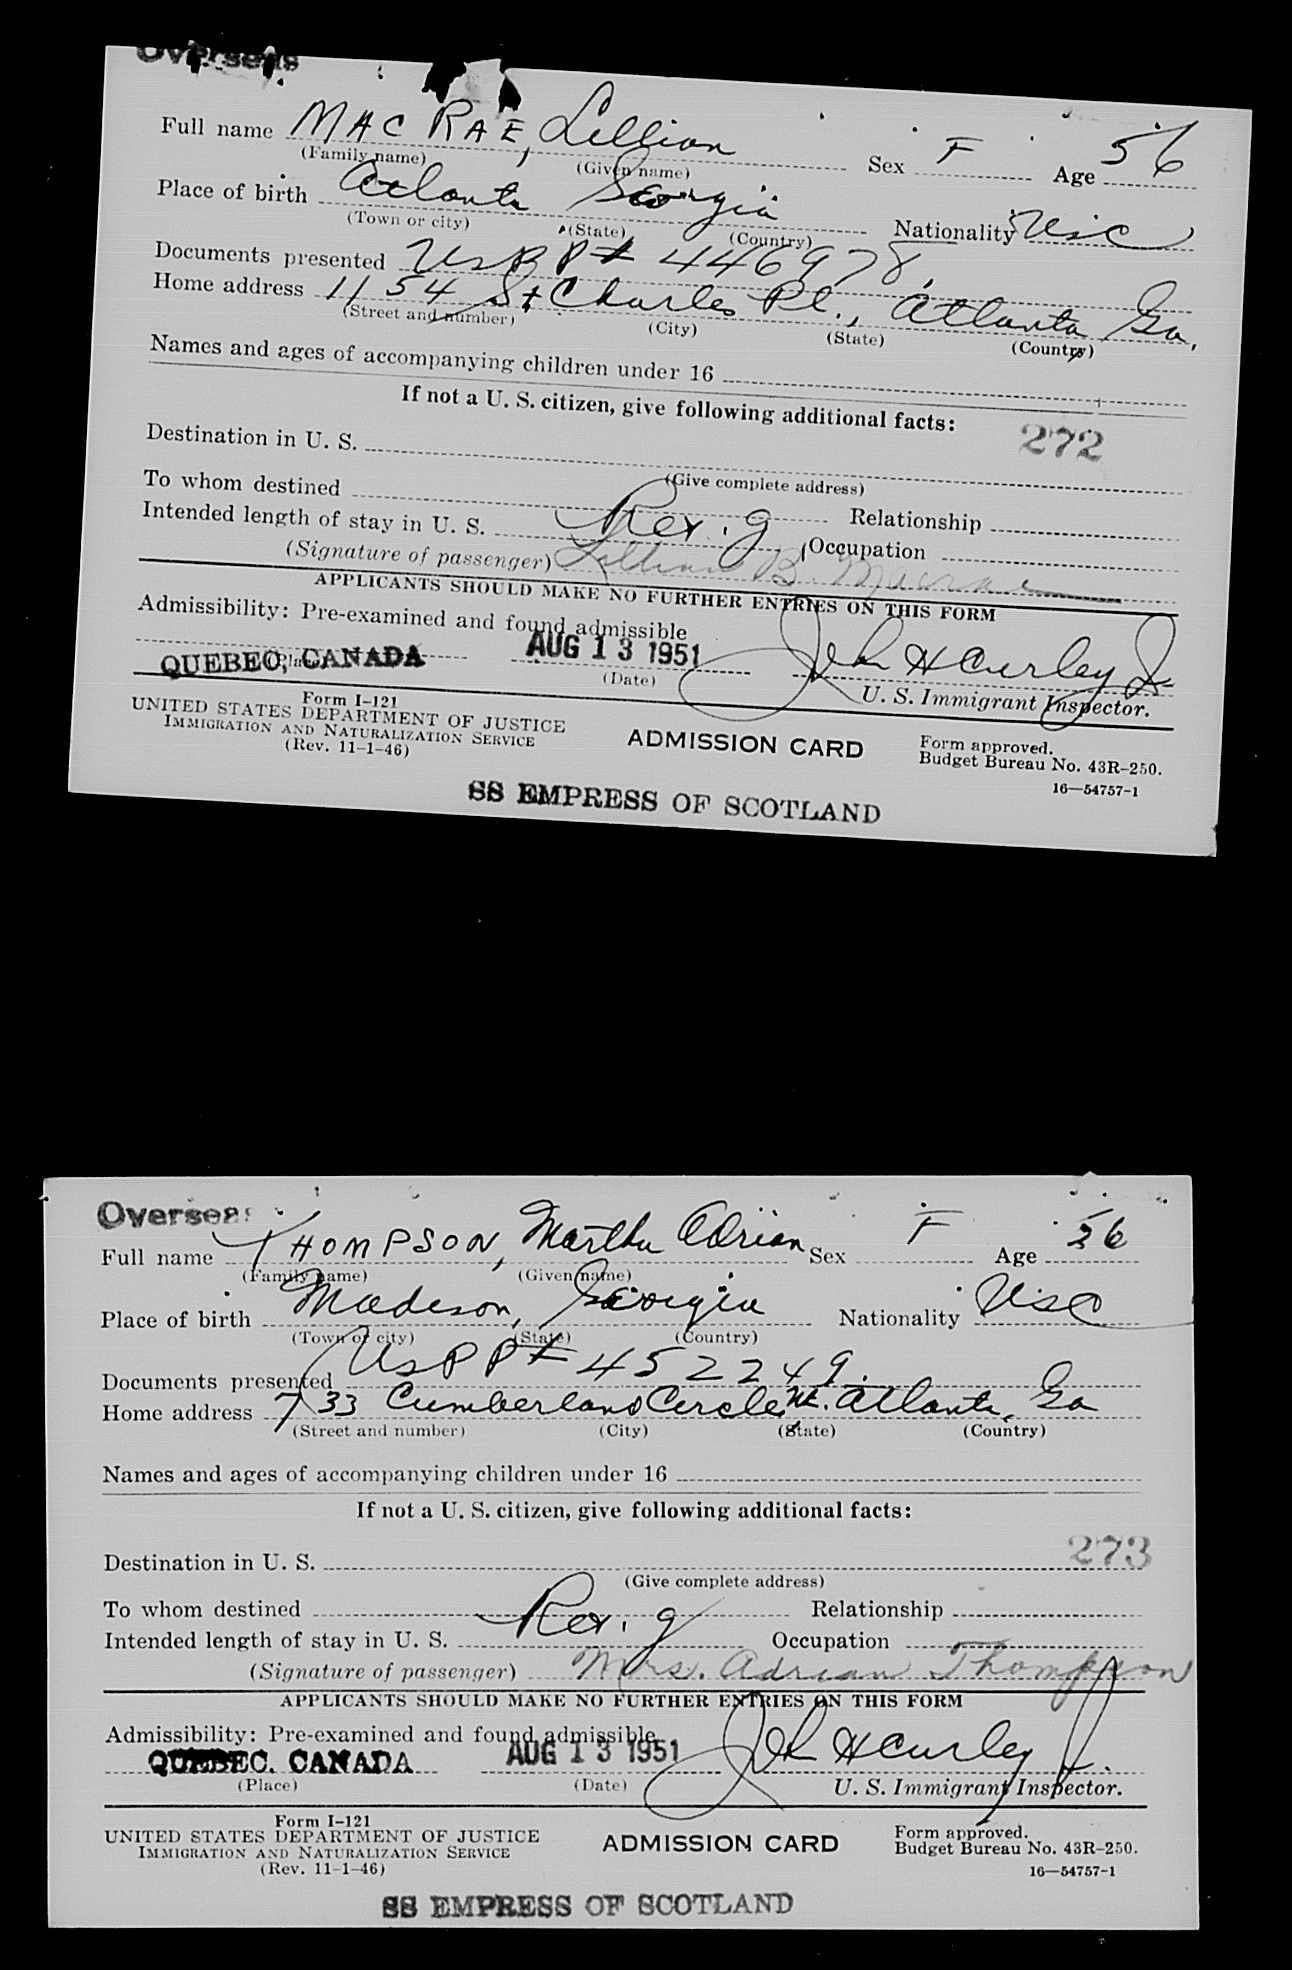 Overseas
Full name MAC RAE, Lillian Sex F Age 56
(Family name) (Given name)
Place of birth Atlanta Georgia Nationality USC
(Town or city) (State) (Country)
Documents presented US PP# 446978.
Home address 1154 St Charles Pl., Atlanta Ga.
(Street and number) (City) (State) (Country)
Names and ages of accompanying children under 16
If not a U. S. citizen, give following additional facts:
272
Destination in U. S.
(Give complete address)
To whom destined Relationship
Intended length of stay in U. S. Occupation
(Signature of passenger) Lillian B. Macrae
APPLICANTS SHOULD MAKE NO FURTHER ENTRIES ON THIS FORM
Admissibility: Pre-examined and found admissible
QUEBEC, CANADA AUG 13 1951 John H Curley Jr
(Place) (Date) U. S. Immigrant Inspector.
Form I-121
UNITED STATES DEPARTMENT OF JUSTICE
IMMIGRATION AND NATURALIZATION SERVICE
(Rev. 11-1-46)
ADMISSION CARD
Form approved.
Budget Bureau No. 43R-250.
16—54757-1
SS EMPRESS OF SCOTLAND
Overseas
Full name THOMPSON, Martha Adrian Sex F Age 56
(Family name) (Given name)
Place of birth Madison, Georgia Nationality USC
(Town or city) (State) (Country)
Documents presented US PP# 452249.
Home address 733 Cumberland Circle NE. Atlanta, Ga
(Street and number) (City) (State) (Country)
Names and ages of accompanying children under 16
If not a U. S. citizen, give following additional facts:
273
Destination in U. S.
(Give complete address)
To whom destined Relationship
Intended length of stay in U. S. Occupation
(Signature of passenger) Mrs. Adrian Thompson
APPLICANTS SHOULD MAKE NO FURTHER ENTRIES ON THIS FORM
Admissibility: Pre-examined and found admissible
QUEBEC, CANADA AUG 13 1951 John H Curley Jr.
(Place) (Date) U. S. Immigrant Inspector.
Form I-121
UNITED STATES DEPARTMENT OF JUSTICE
IMMIGRATION AND NATURALIZATION SERVICE
(Rev. 11-1-46)
ADMISSION CARD
Form approved.
Budget Bureau No. 43R-250.
16—54757-1
SS EMPRESS OF SCOTLAND